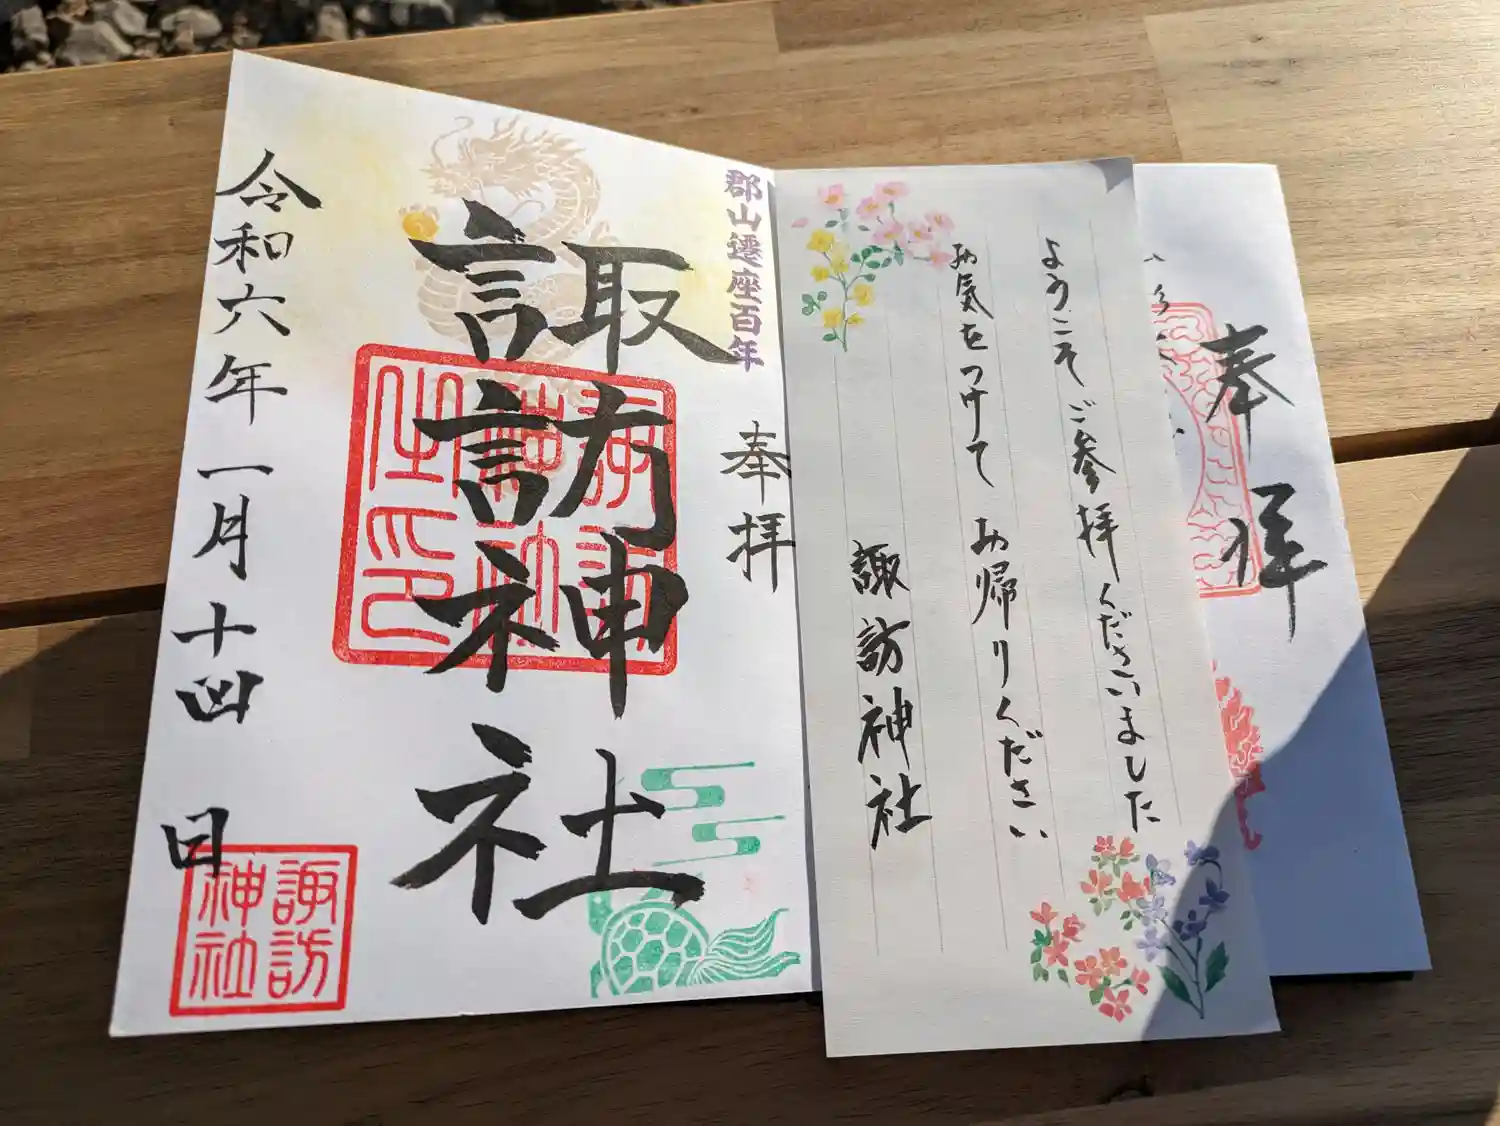 奉拝
ようこそご参拝くださいました
お気をつけてお帰りください
諏訪神社
郡山遷座百年
奉拝
諏訪神社
諏訪神社之印
令和六年一月十四日
諏訪神社